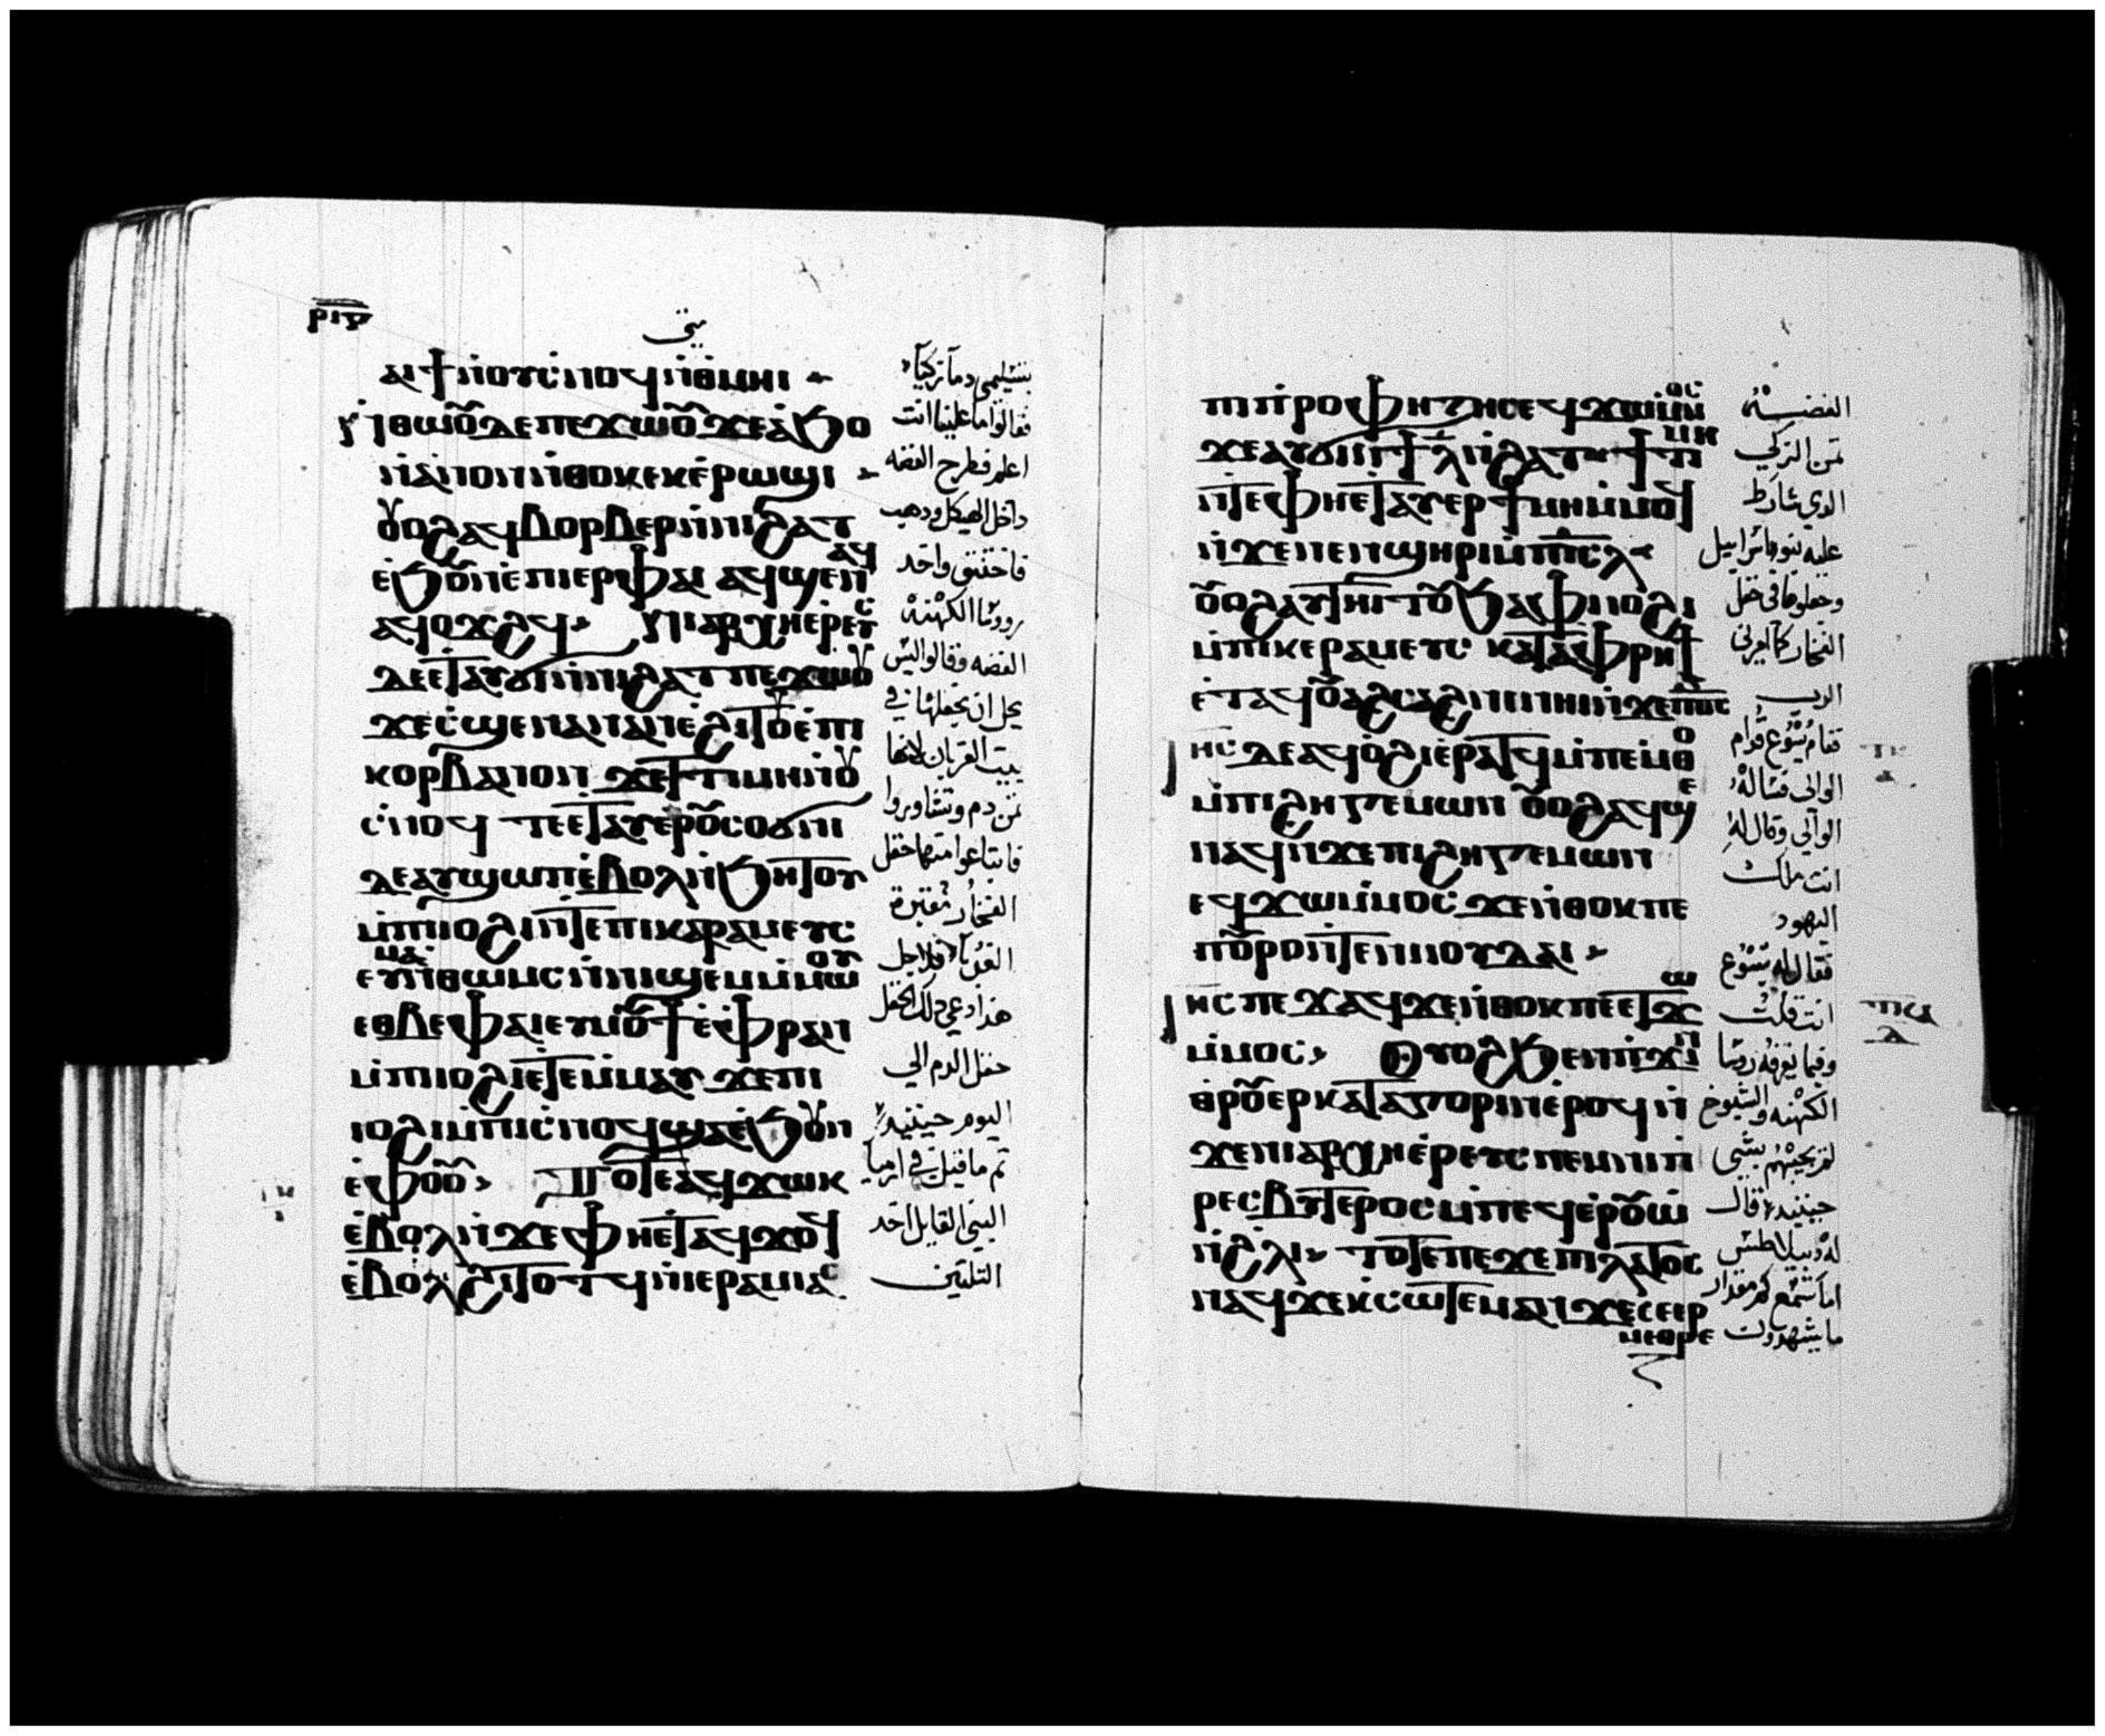 ⲣⲓⲋ
متى
ⲁⲓϯⲛⲟⲩⲥⲛⲟϥⲛⲑⲙⲏⲓ
ⲛⲑⲱⲟⲩⲇⲉⲡⲉϫⲱⲟⲩϫⲉⲁϧⲟ
ⲛⲁⲛⲟⲛⲛⲑⲟⲕⲉⲕⲉⲣⲱϣⲓ
ⲟⲩⲟϩⲁϥⲃⲟⲣⲃⲉⲣⲛⲛⲓϩⲁⲧ
ⲉϧⲟⲩⲛⲉⲡⲓⲉⲣⲫⲉⲓ ⲁϥϣⲉⲛⲁϥ
ⲁϥⲟϫϩϥ ⲛⲓⲁⲣⲭⲏⲉⲣⲉⲩⲥ
ⲇⲉⲉⲧⲁⲩϭⲓⲛⲛⲓϩⲁⲧ ⲡⲉϫⲱⲟⲩ
ϫⲉⲥϣⲉⲛⲁⲛⲁⲛⲉϩⲓⲧⲟⲩⲉⲡⲓ
ⲕⲟⲣⲃⲁⲛⲟⲛ ϫⲉⲧⲓⲙⲏⲛⲟⲩ
ⲥⲛⲟϥ ⲧⲉⲉⲧⲁⲩⲉⲣⲟⲩⲥⲟϭⲛⲓ
ⲇⲉⲁⲩϣⲱⲡⲉⲃⲟⲗⲛϧⲏⲧⲟⲩ
ⲙⲡⲓⲓⲟϩⲓⲛⲧⲉⲡⲓⲕⲁⲣⲁⲙⲉⲩⲥ
ⲉⲩⲙⲁⲛⲑⲱⲙⲥⲛⲛⲓϣⲉⲙⲙⲱⲟⲩ
ⲉⲑⲃⲉⲫⲁⲓⲉⲩⲙⲟⲩϯⲉⲫⲣⲁⲛ
ⲙⲡⲓⲓⲟϩⲓⲉⲧⲉⲙⲙⲁⲩ ϫⲉⲡⲓ
ⲓⲟϩⲓⲙⲡⲓⲥⲛⲟϥϣⲁⲉϧⲟⲩⲛ
ⲉⲫⲟⲟⲩ ⲧⲟⲧⲉⲁϥϫⲱⲕ
ⲉⲃⲟⲗⲛϫⲉⲫⲏⲉⲧⲁϥϫⲟϥ
ⲉⲃⲟⲗϩⲓⲧⲟⲧϥⲛⲓⲉⲣⲁⲙⲓⲁⲥ
بتسليمي دماً زكياً
فقالوا ما علينا انت
اعلم فطرح الفضه
داخل الهيكل ودهب
فاختنق واخد
رووسا الكهنه
الفضه وقالوا ليس
يحل ان نجعلها في
بيت القربان لانها
ثمن دم وتشاوروا
فابتاعوا منها حقل
الفخار مقبرة
الغربا فلاجل
هدا دعي دلك الحقل
حقل الدم الي
اليوم حينيد
تم ما قيل في ارميا
النبي القايل اخد
التلتين
ⲡⲓⲡⲣⲟⲫⲏⲧⲏⲥⲉϥϫⲱⲙⲙⲟⲥ
ϫⲉⲁⲩϭⲓⲛϯⲗⲛϩⲁⲧⲧⲓⲙⲏ
ⲛⲧⲉⲫⲏⲉⲧⲁⲩⲉⲣⲧⲓⲙⲏⲙⲙⲟϥ
ⲛϫⲉⲛⲉⲛϣⲏⲣⲓⲙⲡⲓⲥⲗ
ⲟⲩⲟϩⲁⲩⲧⲏⲓⲧⲟⲩϧⲁⲫⲓⲟϩⲓ
ⲙⲡⲓⲕⲉⲣⲁⲙⲉⲩⲥ ⲕⲁⲧⲁⲫⲣⲏϯ
ⲉⲧⲁϥⲟⲩⲁϩⲥⲁϩⲛⲓⲛⲏⲓⲛϫⲉⲡⲟⲥ
ⲓⲏⲥ ⲇⲉⲁϥⲟϩⲓⲉⲣⲁⲧϥⲙⲡⲉⲙⲑⲟ
ⲙⲡⲓϩⲏⲅⲉⲙⲱⲛ ⲟⲩⲟϩⲁϥϣⲉ
ⲛⲁϥⲛϫⲉⲡⲓϩⲏⲅⲉⲙⲱⲛ
ⲉϥϫⲱⲙⲙⲟⲥ ϫⲉⲛⲑⲟⲕⲡⲉ
ⲡⲟⲩⲣⲟⲛⲧⲉⲛⲓⲓⲟⲩⲇⲁⲓ
ⲓⲏⲥ ⲡⲉϫⲁϥϫⲉⲛⲑⲟⲕⲡⲉⲉⲧϫⲱ
ⲙⲙⲟⲥ Ⲟⲩⲟϩϧⲉⲛⲡϫⲓⲛ
ⲑⲣⲟⲩⲉⲣⲕⲁⲧⲁⲅⲟⲣⲓⲛⲉⲣⲟϥⲛ
ϫⲉⲛⲓⲁⲣⲭⲏⲉⲣⲉⲩⲥⲛⲉⲙⲛⲓⲡ
ⲣⲉⲥⲃⲩⲧⲉⲣⲟⲥⲙⲡⲉϥⲉⲣⲟⲩⲱ
ⲛϩⲗⲓ ⲧⲟⲧⲉⲡⲉϫⲉⲡⲓⲗⲁⲧⲟⲥ
ⲛⲁϥϫⲉⲕⲥⲱⲧⲉⲙⲁⲛϫⲉⲥⲉⲉⲣ
ⲙⲉⲑⲣⲉ
الفضه
ثمن الزكي
الدي شارط
عليه بنو اسراييل
وجعلوها في حقل
الفخار كما امرني
الرب
فقام يسوع قدام
الوالي فساله
الوالي وقال له
انت ملك
اليهود
فقال له يسوع
انت قلت
وفيما يقرفه روسا
الكهنه والشيوخ
لم يجيبهم بشي
حينيد قال
له بيلاطس
اما تسمع كم مقدار
ما يشهدون